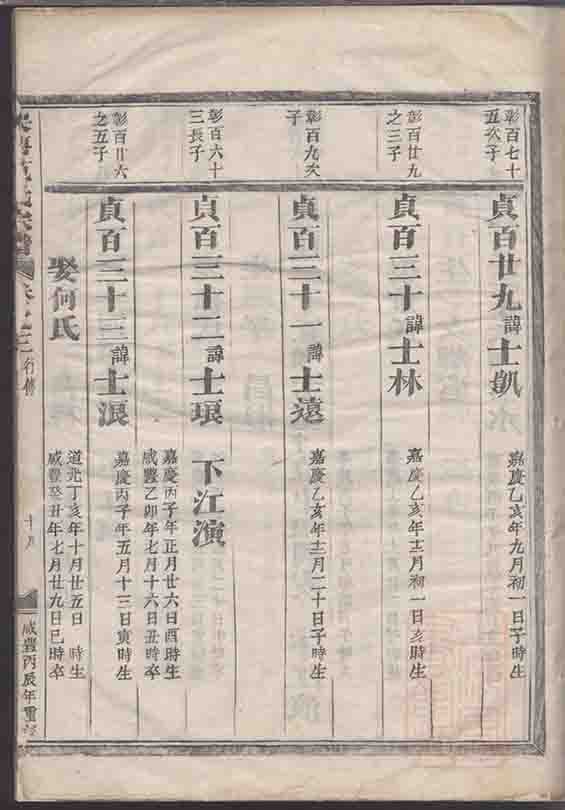 彰百七十
五次子
貞百廿九諱士凱
嘉慶乙亥年九月初一日子時生
彰百廿九
之三子
貞百三十諱士林
嘉慶乙亥年十二月初一日亥時生
彰百九次
子
貞百三十一諱士遠
嘉慶乙亥年十二月二十日子時生
彰百六十
三長子
貞百三十二諱士琅 下江演
嘉慶丙子年正月廿六日酉時生
咸豐乙卯年七月十六日丑時卒
彰百廿六
之五子
貞百三十三諱士浪
嘉慶丙子年五月十三日寅時生
娶何氏
道光丁亥年十月廿五日 時生
咸豐癸丑年七月廿九日巳時卒
氏宗譜 卷之三 行傳 十九 咸豐丙辰年重修